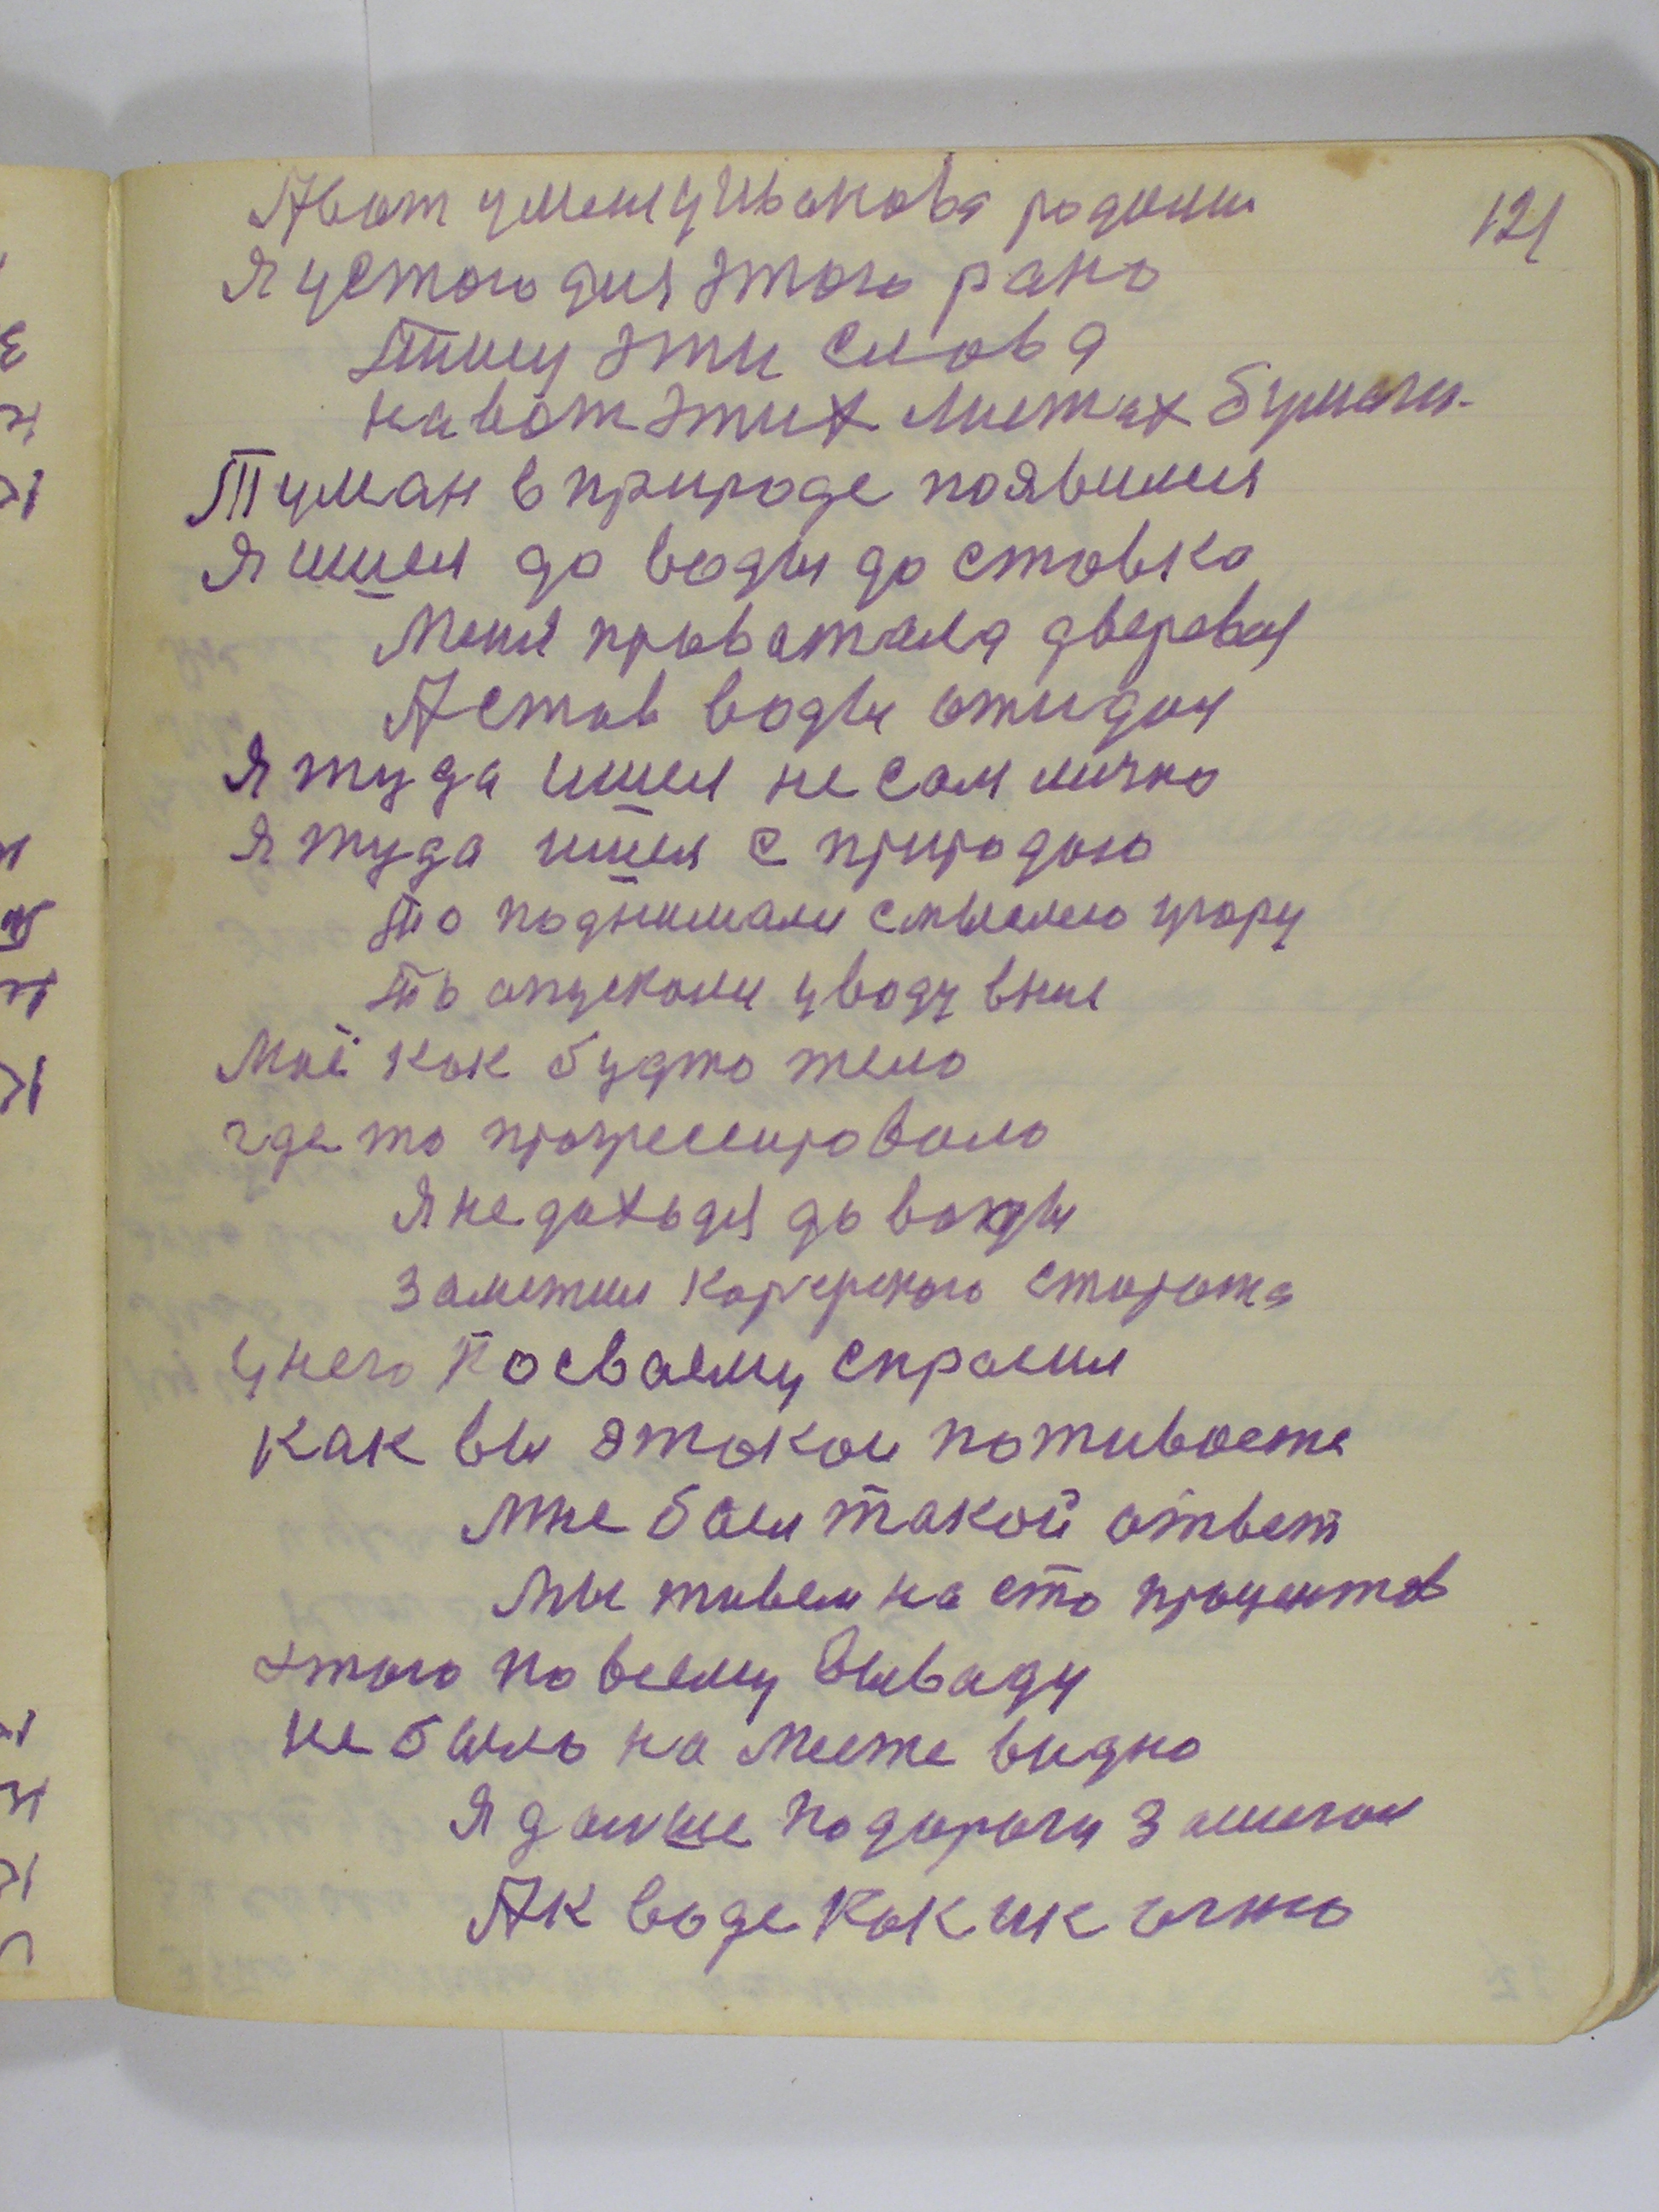 121
А вот у меня у Иванова родилис
Я устого дня этого рано
Пишу эти слова
на вот этих листах бумаги.
Туман в природе появился
Я ишел до воды до ставка
Меня провожала дверовая
А став воды ожидал
Я туда ишел не сам лично
Я туда ишел с природою
То поднимали с мыслею угору
То опускали у воду вниз
Моё как будто тело
где то прогрессировало
Я не доходя до воды
заметил карерского сторожа
у него по сваему спросил
Как вы этакои поживаете
Мне был такой ответ
Мы живем на сто процентов
этого по всему вываду
не было на месте видно
Я дальше по дороги зашигал
А к воде как ик огню